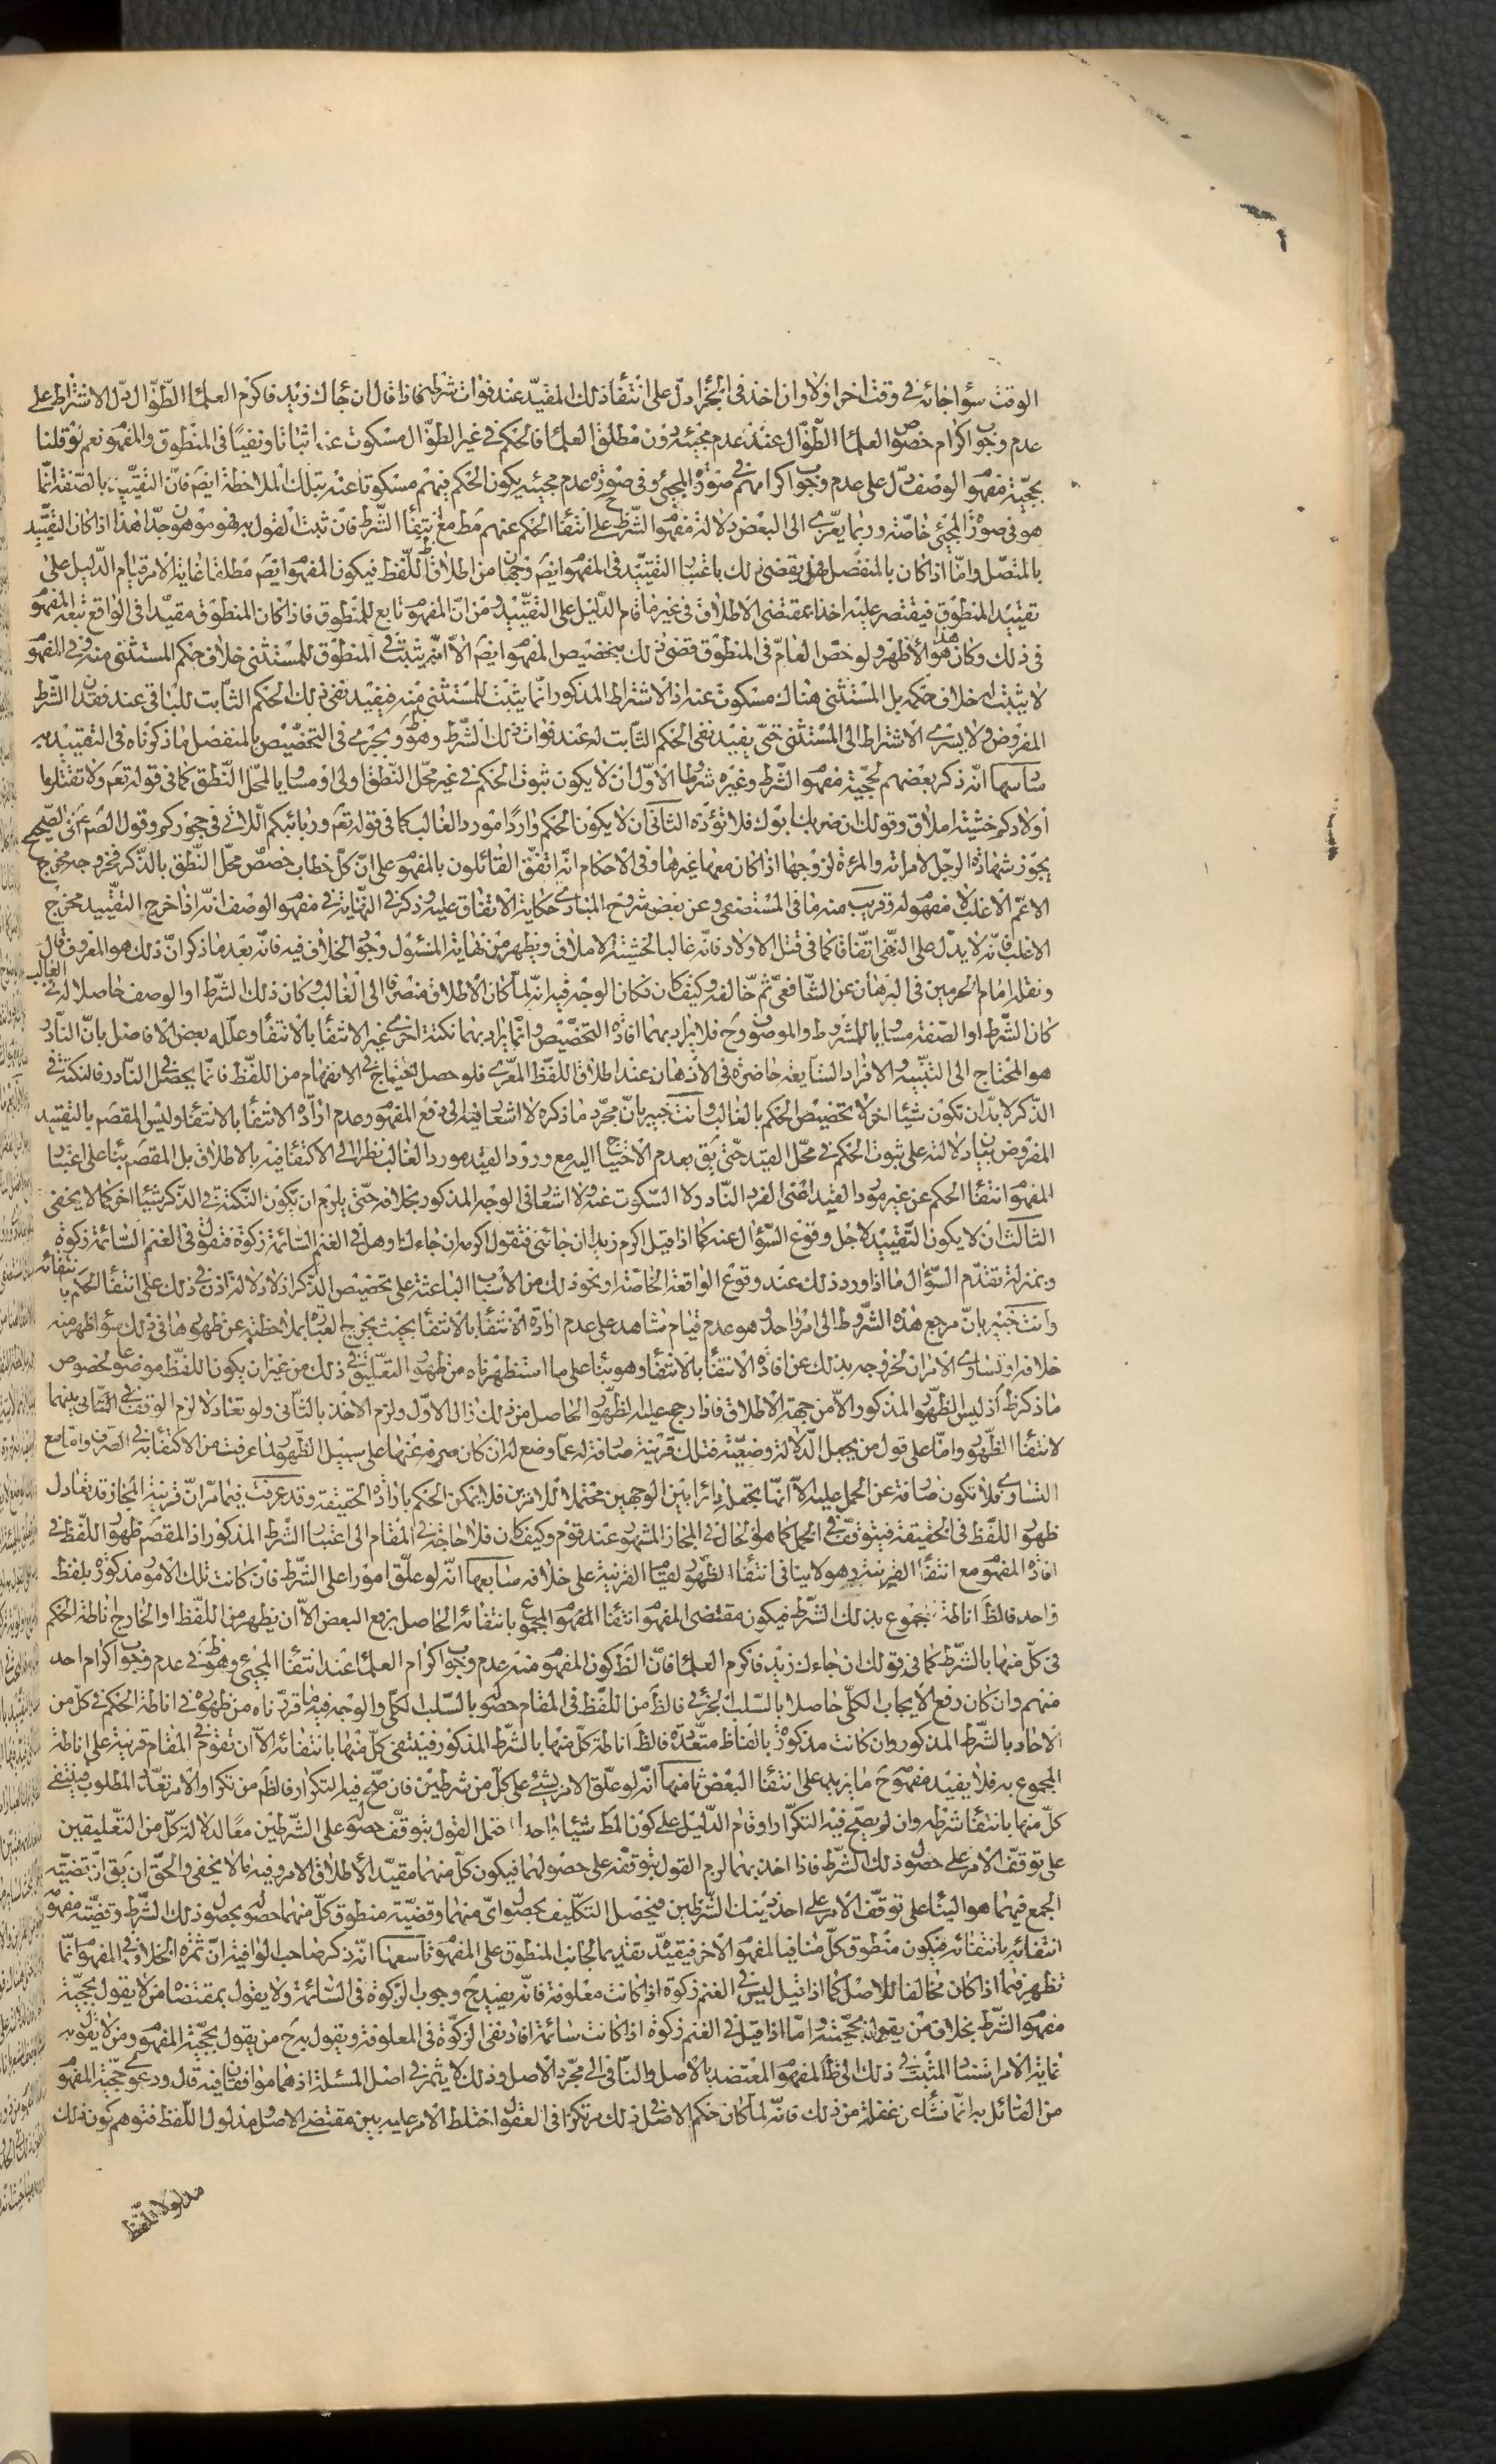 الوقت سواء جائه في وقت اخر اولا وان اخذ في الجزاء دلّ على انتفاء ذلك المقيّد عند فوات شرطه فاذا قال ان جاءك زيد فاكرم العلماء الطّوال دلّ الاشتراط على
عدم وجوب اكرام خصوص العلماء الطّوال عند عدم مجيئه دون مطلق العلماء فالحكم في غير الطوّال مسكوت عنه اثباتا ونفيًا في المنطوق والمفهوم نعم لو قلنا
بحجيّة مفهوم الوصف دلّ على عدم وجوب اكرامهم في صورة المجيئ وفي صورة عدم مجيئه يكون الحكم فيهم مسكوتا عنه بتلك الملاحظة ايضم فانّ التقييد بالصّفة انّما
هو في صورة المجيئ خاصّة وربّما يعزى الى البعض دلالة مفهوم الشّرط ح على انتفاء الحكم عنهم مط مع انتفاء الشّرط فان ثبت القول به فهو موهون جدّا هذا اذا كان التقييد
بالمتصّل وامّا اذا كان بالمنفصل فهل يقضى ذلك باعتبار التقييد في المفهوم ايضم وجهان من اطلاق اللّفظ فيكون المفهوم ايضم مطلقا غاية الامر قيام الدّليل على
تقييد المنطوق فيقتصر عليه اخذا بمقتضى الاطلاق في غير ما قام الدّليل على التقييد ومن انّ المفهوم تابع للمنطوق فاذا كان المنطوق مقيّدا في الواقع تبعه المفهوم
في ذلك وكان هذا هو الأظهر ولو خصّ العامّ في المنطوق قضى ذلك بتخصيص المفهوم ايضم الّا انّه يثبت في المنطوق للمستثنى خلاف حكم المستثنى منه وفي المفهوم
لا يثبت له خلاف حكمه بل المستثنى هناك مسكوت عنه اذ الاشتراط المذكور انّما يثبت للمستثنى منه فيفيد نفى ذلك الحكم الثّابت للباقى عند فقدان الشّرط
المفروض ولا يسرى الاشتراط الى المستثنى حتّى يفيد نفى الحكم الثّابت له عند فوات ذلك الشّرط وهو ظ ويجرى في التخصّيص بالمنفصل ما ذكرناه في التقييد به
سادسها انّه ذكر بعضهم لحجيّة مفهوم الشّرط وغيره شروطا الاوّل ان لا يكون ثبوت الحكم في غير محلّ النّطق اولى او مساويا لمحلّ النّطق كما في قوله تعم ولا تقتلوا
اولادكم خشية املاق وقولك ان ضربك ابوك فلا تؤذه الثانى ان لا يكون الحكم واردًا مورد الغالب كما في قوله تعم وربائبكم اللّاتى في حجوركم وقول الصم عم في الصّحيح
يجوز شهادة الرجل لامراته والمرءة لزوجها اذا كان معها غيرها وفي الاحكام انّه اتفق القائلون بالمفهوم على انّ كلّ خطاب خصص محلّ النّطق بالذّكر لخروجه مخرج
الاعّم الاغلب لا مفهوم له وقريب منه ما في المستصفى وعن بعض شروح المبادى حكاية الاتفاق عليه وذكر في النّهاية في مفهوم الوصف انّه اذا خرج التقييد مخرج
الاغلب فانّه لا يدلّ على النّفى اتّفاقا كما في قتل الاولاد فانّه غالبا لخشية الاملاق ويظهر من نهاية المسئول وجود الخلاف فيه فانّه بعد ما ذكر انّ ذلك هو المعروف قال
ونقله امام الحرمين في البرهان عن الشّافعى ثم خالفه وكيف كان فكان الوجه فيه انّه لمّا كان الاطلاق منصرفا الى الغالب وكان ذلك الشّرط او الوصف حاصلا له في الغالب
كان الشّرط او الصّفة مساويا للمشروط والموصوف وح فلا يراد بهما افادة التخصّيص وانّما يراد بهما نكتة اخرى غير الانتفاء بالانتفاء وعلّله بعض الافاضل بانّ النّادر
هو المحتاج الى التنبّيه والافراد الشّايعة حاضرة في الاذهان عند اطلاق اللّفظ المعرّى فلو حصل احتياج في الانفهام من اللّفظ فانّما يحصل في النّادر فالنكتة في
الذّكر لا بدّ ان تكون شيئا اخر لا تخصيص الحكم بالغالب وانت خبير بانّ مجرّد ما ذكره لا اشعار فيه الى دفع المفهوم وعدم ارادة الانتفاء بالانتفاء وليس المقصم بالتقييد
المفروض بيان دلالته على ثبوت الحكم في محلّ القيد حتّى يق بعدم الاحتياج اليه مع ورود القيد مورد الغالب نظرا الى الاكتفاء فيه بالاطلاق بل المقصم بناء على اعتبار
المفهوم انتفاء الحكم عن غير مورد القيد اعنى الفرد النّادر ولا السّكوت عنه ولا اشعار في الوجه المذكور بخلافه حتّى يلزم ان تكون النّكتة في الذّكر شيئا اخر كما لا يخفى
الثّالث ان لا يكون التّقييد لاجل وقوع السّؤال عنه كما اذا قيل اكرم زيدا ان جائنى فتقول اكرمه ان جاءك او هل في الغنم السّائمة زكوة فتقول في الغنم السّائمة زكوة
وبمنزلة تقدّم السّؤال ما اذا ورد ذلك عند وقوع الواقعة الخاصّة او نحو ذلك من الأسباب الباعثة على تخصيص الذّكر اذ لا دلالة اذن في ذلك على انتفاء الحكم بانتفائه
وانت خبير بانّ مرجع هذه الشّروط الى امر واحد هو عدم قيام شاهد على عدم ارادة الانتفاء بالانتفاء بحيث يخرج العبارة بملاحظته عن ظهورها في ذلك سواء ظهر منه
خلافه او تساوى الامران لخروجه بذلك عن افادة الانتفاء بالانتفاء وهو بناء على ما استظهرناه من ظهور التعّليق في ذلك من غير ان يكون اللّفظ موضوعا لخصوص
ما ذكر ظ اذ ليس الظّهور المذكور الّا من جهة الاطلاق فاذا رجح عليه الظّهور الحاصل من ذلك زال الاوّل ولزم الاخذ بالثّانى ولو تعادلا لزم الوقف في الثّانى بينهما
لانتفاء الظّهور وامّا على قول من يجعل الدّلالة وضعيّة فتلك قرينة صارفة له عمّا وضع له ان كان صرفه عنها على سبيل الظّهور لما عرفت من الاكتفاء به في الصّرف وامّا مع
التساوى فلا تكون صارفة عن الحمل عليه الّا انّها تجعله دائرا بين الوجهين محتملا للامرين فلا يمكن الحكم بارادة الحقيقة وقد عرفت فيما مرّ انّ قرينة المجاز قد تعادل
ظهور اللفّظ في الحقيقة فيتوقّف في الحمل كما هو الحال في المجاز المشهور عند قوم وكيف كان فلا حاجة في المقام الى اعتبار الشّرط المذكور اذ المقصم ظهور اللفّظ في
افادة المفهوم مع انتفاء القرينة وهو لا ينافى انتفاء الظّهور لقيام القرينة على خلافه سابعها انّه لو علّق امورا على الشّرط فان كانت تلك الامور مذكورة بلفظ
واحد فالظ اناطة المجموع بذلك الشّرط فيكون مقتضى المفهوم انتفاء المفهوم المجموع بانتفائه الحاصل برفع البعض الّا ان يظهر من اللّفظ او الخارج اناطة الحكم
في كلّ منها بالشّرط كما في قولك ان جاءك زيد فاكرم العلماء فانّ الظ كون المفهوم منه عدم وجوب اكرام العلماء عند انتفاء المجيئ وهو ظ في عدم وجوب اكرام احد
منهم وان كان رفع الايجاب الكلّى حاصلا بالسّلب الجزئى فالظ من اللّفظ في المقام حصوله بالسّلب الكلّى والوجه فيه ما قرّرناه من ظهوره في اناطة الحكم في كلّ من
الاحاد بالشّرط المذكور وان كانت مذكورة بالفاظ متعّددة فالظ اناطة كلّ منها بالشّرط المذكور فينتفى كلّ منها بانتفائه الّا ان تقوم في المقام قرينة على اناطة
المجموع به فلا يفيد مفهومه ح ما يزيد على انتفاء البعض ثامنها انّه لو علّق الامر بشئ على كلّ من شرطين فان صحّ فيه التكرار فالظ من تكرار الامر تعدّد المطلوب فينتفى
كلّ منها بانتفاء شرطه وان لم يصحّ فيه التكرّار او قام الدّليل على كون المط شيئا واحدا احتمل القول بتوقّف حصوله على الشّرطين معًا لدلالة كلّ من التعّليقين
على توقّف الامر على حصول ذلك الشّرط فاذا اخذ بهما لزم القول بتوقفه على حصولهما فيكون كلّ منهما مقيّدا لأطلاق الامر وفيه ما لا يخفى والحقّ ان يق انّ قضيّة
الجمع فيهما هو البناء على توقّف الامر على احد ذينك الشّرطين فيحصل التكّليف بحصول اىّ منهما وقضيّة منطوق كلّ منهما حصوله بحصول ذلك الشّرط وقضيّة مفهومه
انتفائه بانتفائه فيكون منطوق كلّ منافيا لمفهوم الاخر فيقيّد به تقديما لجانب المنطوق على المفهوم تاسعها انّه ذكر صاحب الوافية انّ ثمرة الخلاف في المفهوم انّما
تظهر فيما اذا كان مخالفا للاصل كما اذا قيل ليس في الغنم زكوة اذا كانت معلوفة فانّه يفيد ح وجوب الزّكوة في السّائمة ولا يقول بمقتضاه من لا يقول بحجيّة
مفهوم الشّرط بخلاف من يقول بحجيّته وامّا اذا قيل في الغنم زكوة اذا كانت سائمة افاد نفى الزّكوة في المعلوفة ويقول به ح من يقول بحجيّة المفهوم ومن لا يقول به
غاية الامر استناد المثبت في ذلك الى ظ المفهوم المعتضد بالاصل والنّافى الى مجرّد الاصل وذلك لا يثمر في اصل المسئلة اذ هما موافقان فيه قال ودعوى حجيّة المفهوم
من القائل به انّما نشاء عن غفلة من ذلك فانّه لمّا كان حكم الاصل في ذلك مرتكزا في العقول اختلط الامر عليه بين مقتضى الاصل ومدلول اللّفظ فتوهم كون ذلك
مدلولا للّفظ